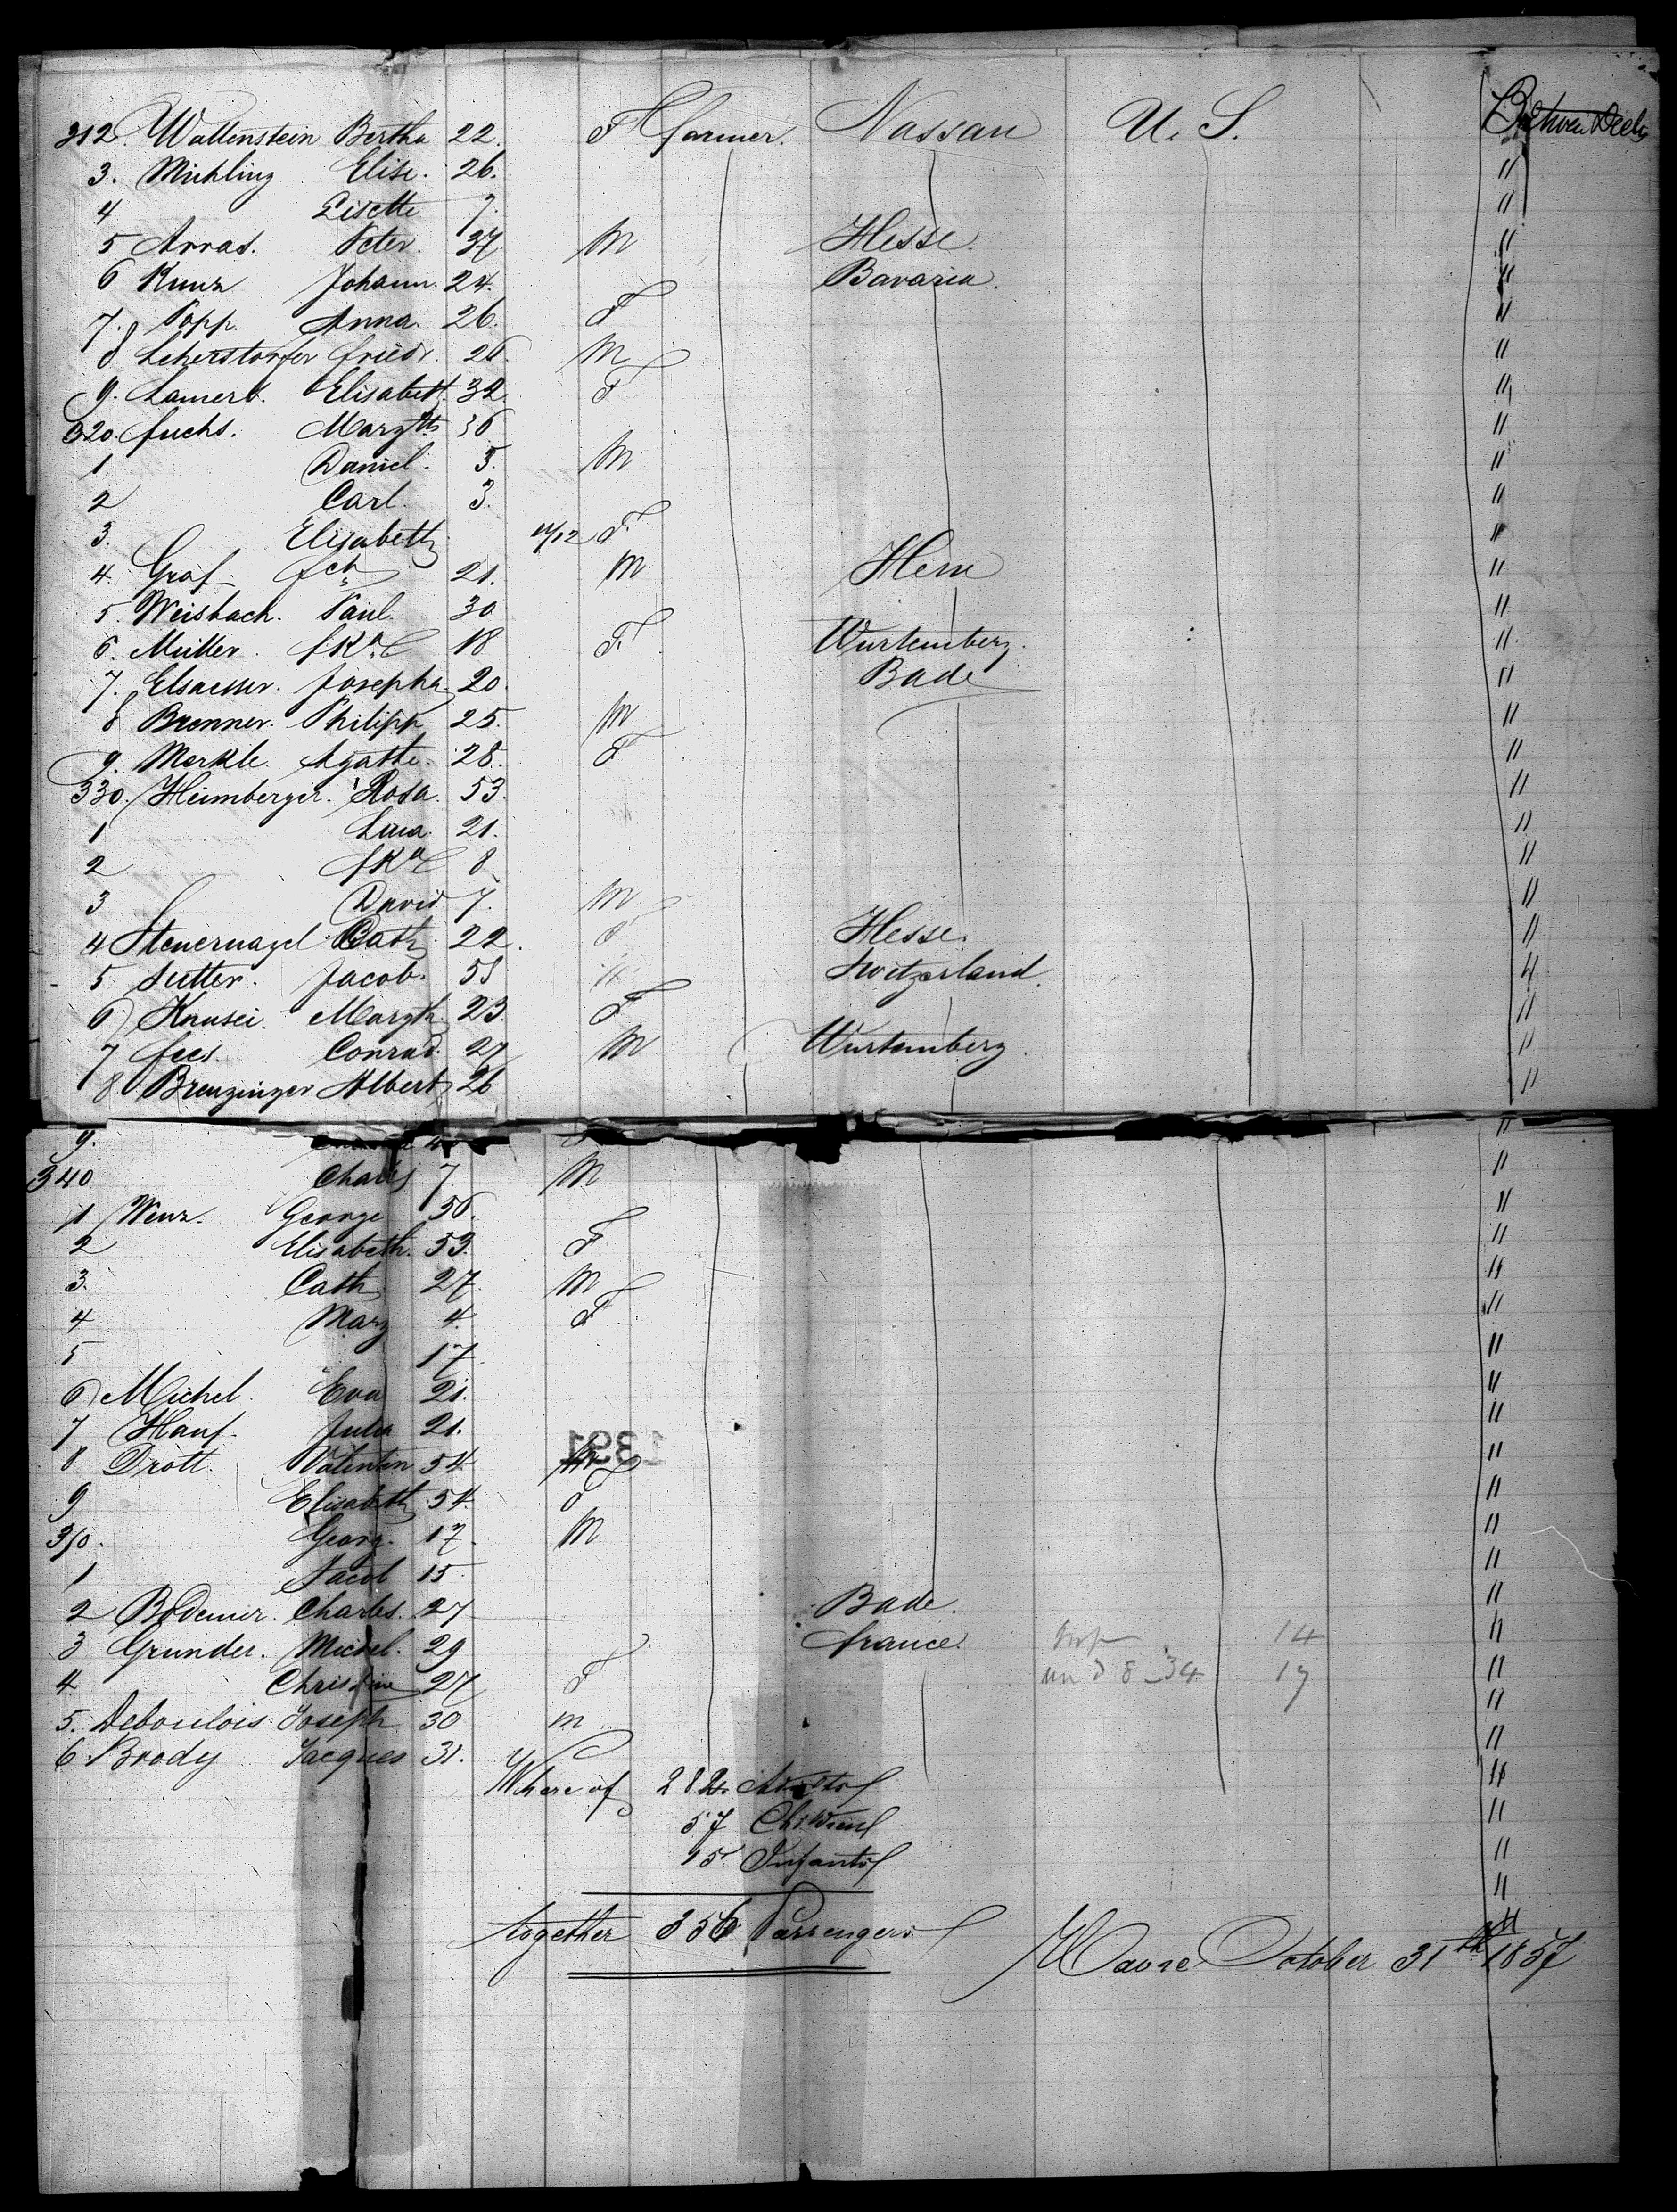 312. Wallenstein Bertha 22. F farmer. Nassau U. S. Between Decks
3. Michling Elise. 26. "
4 Lisette 7. "
5 Arras. Peter. 37 M Hesse. "
6 Kunz Johann. 24. Bavaria. "
7. Popp. Anna. 26. F "
8 Leherstorfer Friedr. 26. M "
9. Lamert. Elisabeth 32 F "
320. Fuchs. Margth 36 "
1 Daniel. 5. M "
2 Carl. 3. "
3. Elisabeth 11/12 F. "
4. Graf 21. M "
5. Weisbach. Paul. 30 "
6. Müller. 18 F. Wurtemberg. "
7. Elsaesser. Josepha 20. Bade "
8 Brenner. Philipp 25. M "
9. Merkle. Agathe. 28. F "
330. Heimberger. Rosa. 53. "
1 Lina. 21. "
2 8 "
3 David 7. M "
4 Steuernagel Cath. 22. F Hesse. "
5 Sutter. Jacob. 55 M Switzerland. "
6 Knusei. Margth 23. F "
7 Fees. Conrad. 27 M Wurtemberg. "
8 Breuzinger Albert 26 "
9. "
340 Charles 7 M "
1 Wenz. George 56. "
2 Elisabeth. 53. F "
3. Cath 27. M "
4 Marg 4. F "
5 17. "
6 Michel. Eva 21. "
7 Hauf. Julia 21. "
8 Drott. Valentin 54 M "
1391
9 Elisabeth 54. F "
350. Georg. 17. M "
1 Jacob 15. "
2 Bodemer. Charles. 27 Bade. "
3 Grunder. Michel. 29 France. 14 "
4. Christine 27 F un d 8_34 17 "
5. Deboulois Joseph 30 m "
6. Brody Jacques 31. "
Where of 284 Adults "
57 Children "
15 Infants "
together 356 Passengers
Havre October 31th 1857